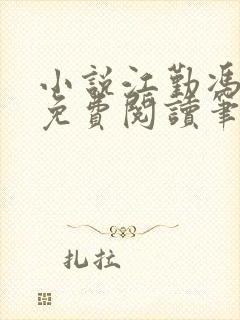 小說江勤馮
免費閱讀筆
扎拉